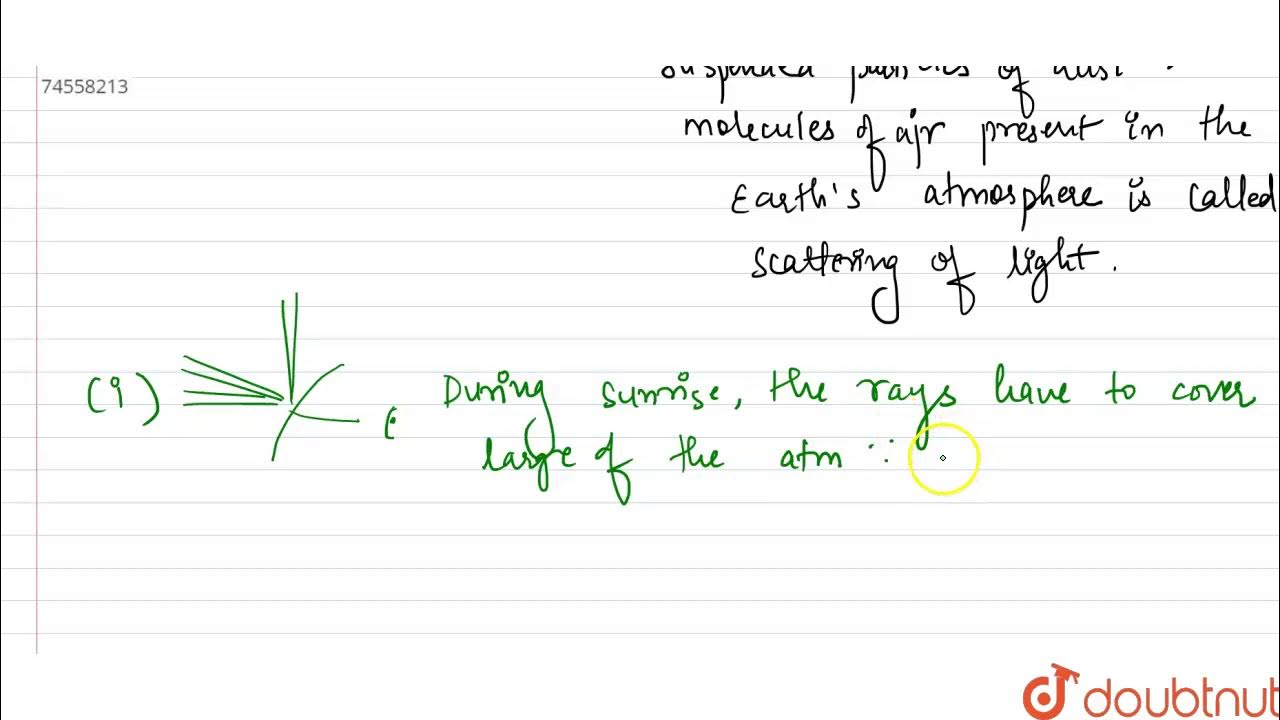 74558213
suspended particles of dust
molecules of air present in the
Earth's atmosphere is called
scattering of light.
(i) E During sunrise, the rays have to cover
large of the atm ∵
doubtnut